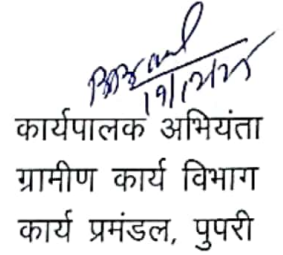 कार्यपालक अभियंता
ग्रामीण कार्य विभाग
कार्य प्रमंडल, पुपरी